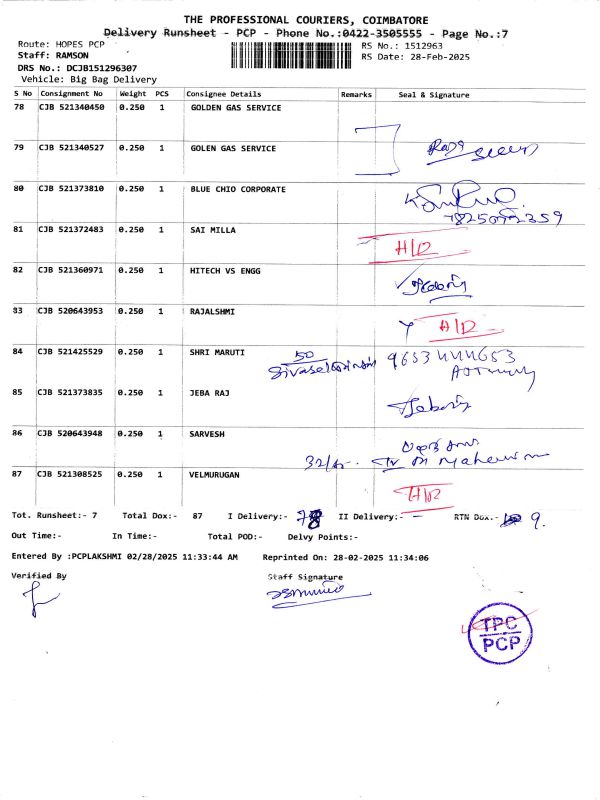 THE PROFESSIONAL COURIERS, COIMBATORE
Delivery Runsheet - PCP - Phone No.:0422-3505555 - Page No.:7
Route: HOPES PCP
RS No.: 1512963
Staff: RAMSON
RS Date: 28-Feb-2025
DRS No.: DCJB151296307
Vehicle: Big Bag Delivery
S No Consignment No Weight PCS Consignee Details Remarks Seal & Signature
78 CJB 521340450 0.250 1 GOLDEN GAS SERVICE
79 CJB 521340527 0.250 1 GOLEN GAS SERVICE
80 CJB 521373810 0.250 1 BLUE CHIO CORPORATE
81 CJB 521372483 0.250 1 SAI MILLA H/D
82 CJB 521360971 0.250 1 HITECH VS ENGG
83 CJB 520643953 0.250 1 RAJALSHMI H/D
84 CJB 521425529 0.250 1 SHRI MARUTI 50 9653444653
85 CJB 521373835 0.250 1 JEBA RAJ
86 CJB 520643948 0.250 1 SARVESH
87 CJB 521308525 0.250 1 VELMURUGAN H/D
Tot. Runsheet:- 7 Total Dox:- 87 I Delivery:- 78 II Delivery:- - RTN Dox.- 9.
Out Time:- In Time:- Total POD:- Delvy Points:-
Entered By :PCPLAKSHMI 02/28/2025 11:33:44 AM Reprinted On: 28-02-2025 11:34:06
Verified By Staff Signature
TPC
PCP